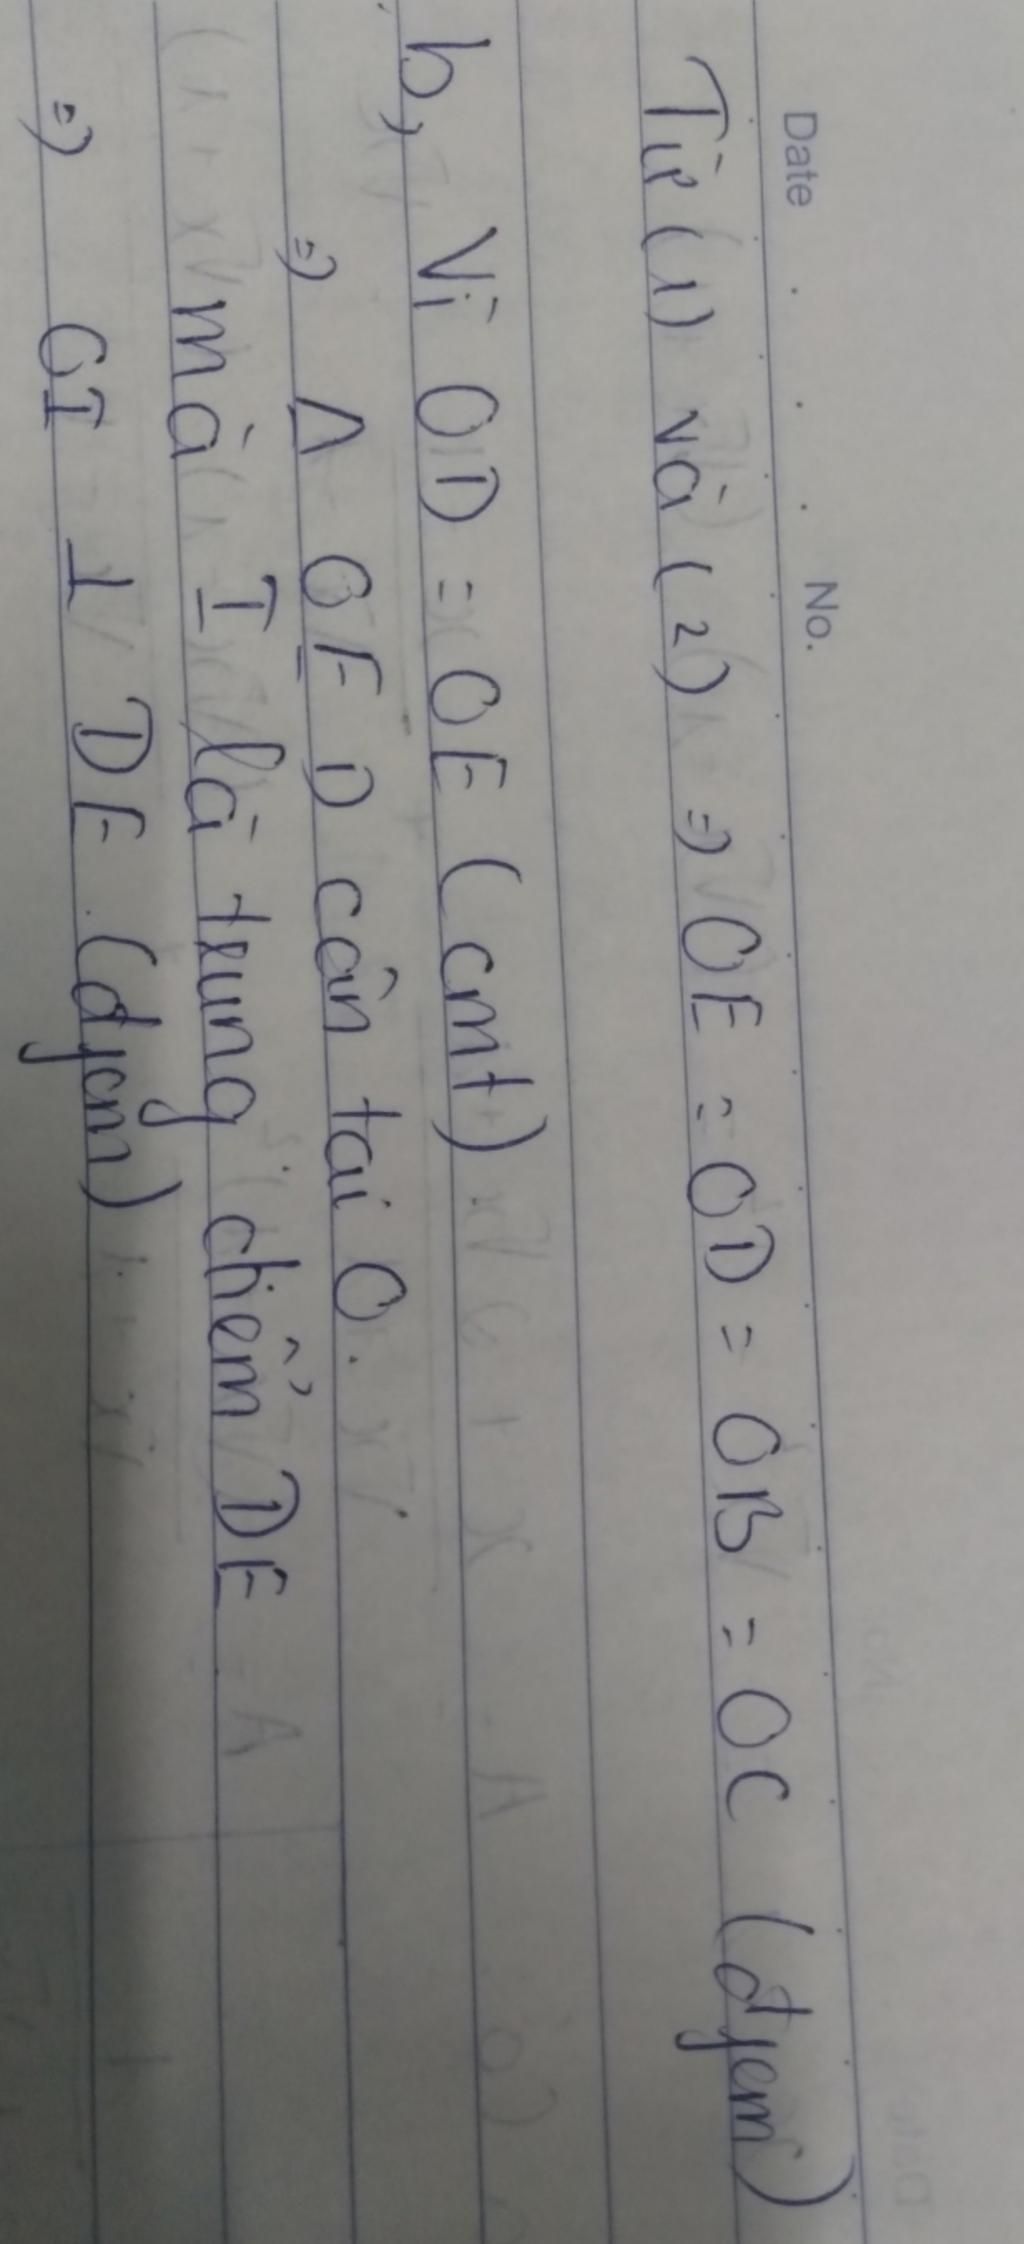 Date No.
Từ (1) và (2) => OE = OD = OB = OC (đycm)
b, Vì OD = OE (cmt)
=> Δ OED cân tai O.
mà I là trung chiểm DE
=> OI ⊥ DE (đycm)